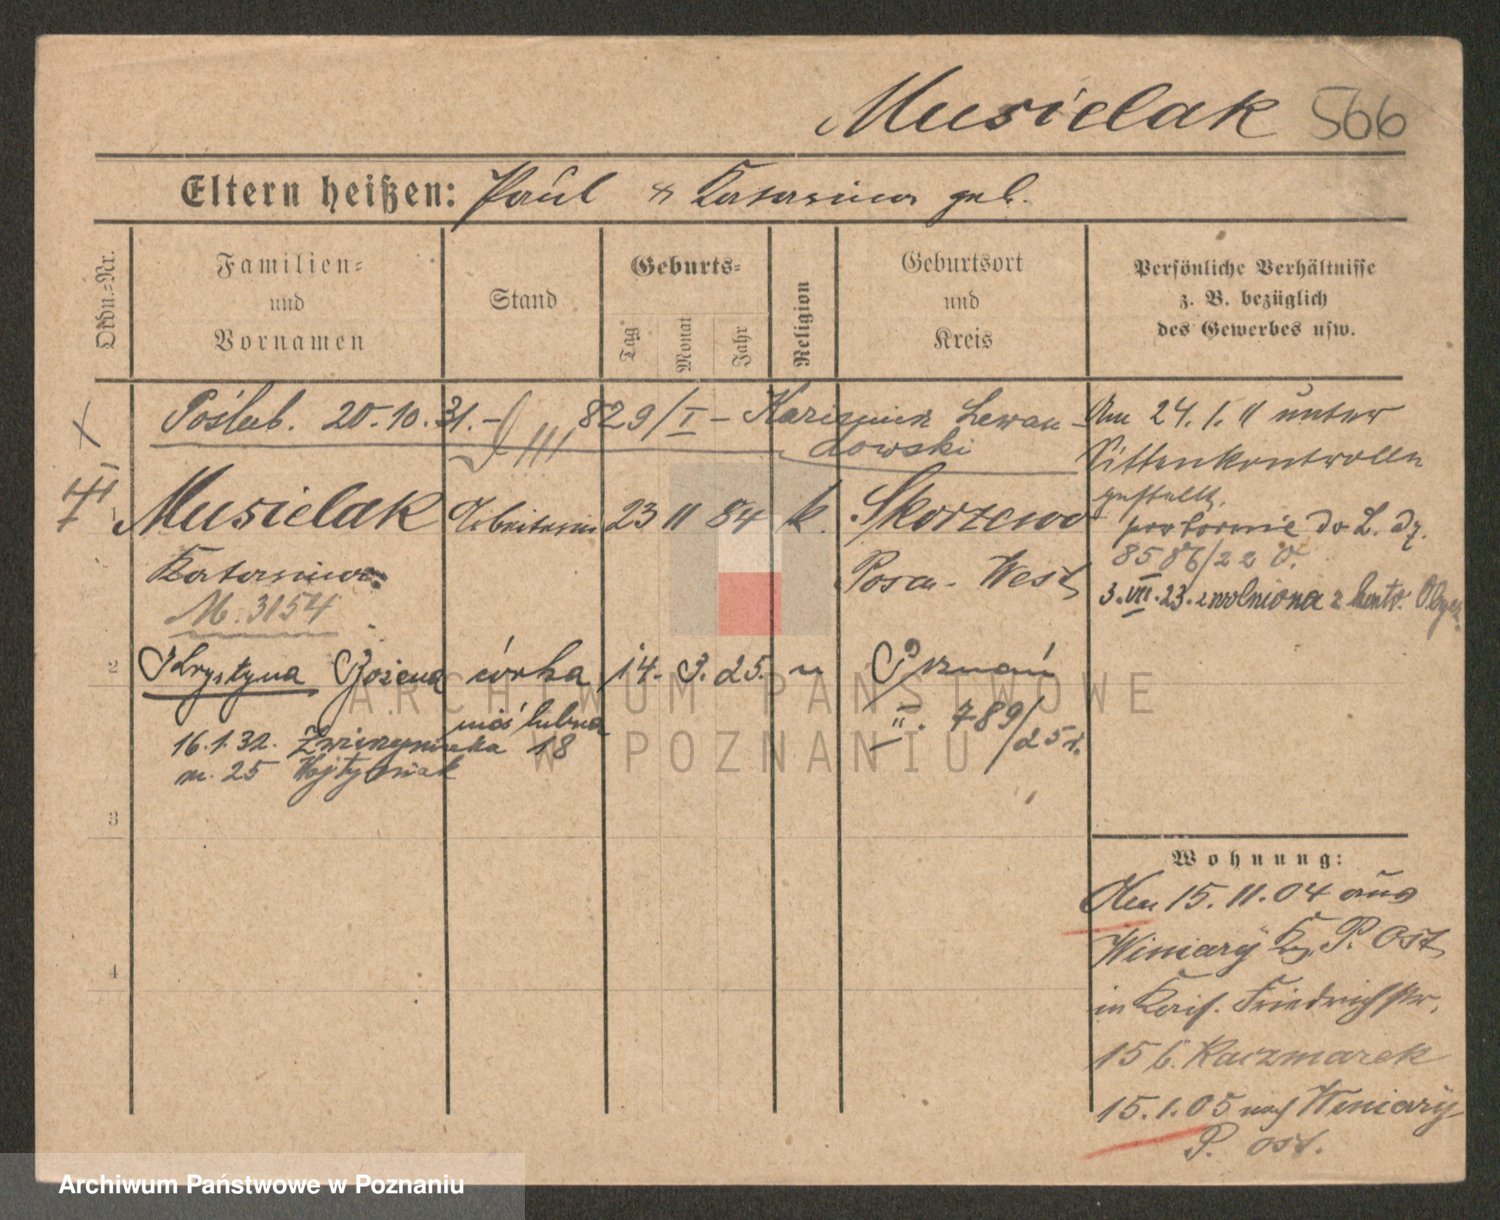 Musielak 566
Eltern heißen: Paul & Katarina geb.
Ordn.-Nr.
Familien-
und
Vornamen
Stand
Geburts-
Tag
Monat
Jahr
Religion
Geburtsort
und
Kreis
Persönliche Verhältnisse
z. B. bezüglich
des Gewerbes usw.
Poślub. 20.10.31.- III 829/I - Kazimierz Lewan-
dowski
Am 24.1.11 unter
Sittenkontrolle
gestellt.
ponownie do L. dz.
8586/22 O.
3.VII.23. zwolniona z kontr. Obycz.
1 Musielak Arbeiterin 23 11 84 k. Skorzewo
Katarina Posen-West
M. 3154
2 Krystyna Bożena córka 14. 3. 25. " Poznań
nieślubna II. 789/25 r.
16.1.32. Zwierzyniecka 18
m. 25 Wojtyniak
3
4
Wohnung:
Den 15.11.04 aus
Winiary Kr. P. Ost
in Kais. Friedrichstr.
15 b. Kaczmarek
15.1.05 nach Winiary
P. Ost.
ARCHIWUM PAŃSTWOWE
W POZNANIU
Archiwum Państwowe w Poznaniu